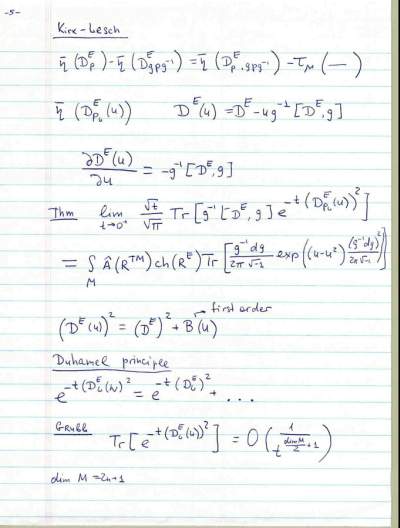 -5-
Kirk-Lesch
η̄ (D_P^E) - η̄ (D^E_{gPg⁻¹}) = η̄ (D^E_{P, gPg⁻¹}) - τ_M ( — )
η̄ (D^E_{P_u}(u))    D^E(u) = D^E - u g⁻¹ [D^E, g]
∂D^E(u)/∂u = -g⁻¹ [D^E, g]
Thm lim_{t→0⁺} √t/√π Tr [g⁻¹ [D^E, g] e^{-t (D^E_{P_u}(u))²}]
= ∫_M Â(R^{TM}) ch(R^E) Tr [g⁻¹dg/2π√-1 exp((u-u²) (g⁻¹dg)²/2π√-1)]
first order
(D^E(u))² = (D^E)² + B(u)
Duhamel principle
e^{-t (D_L^E(u))²} = e^{-t (D_L^E)²} + ...
Grubb Tr [e^{-t (D_L^E(u))²}] = O (1/t^{dim M/2 + 1})
dim M = 2n+1